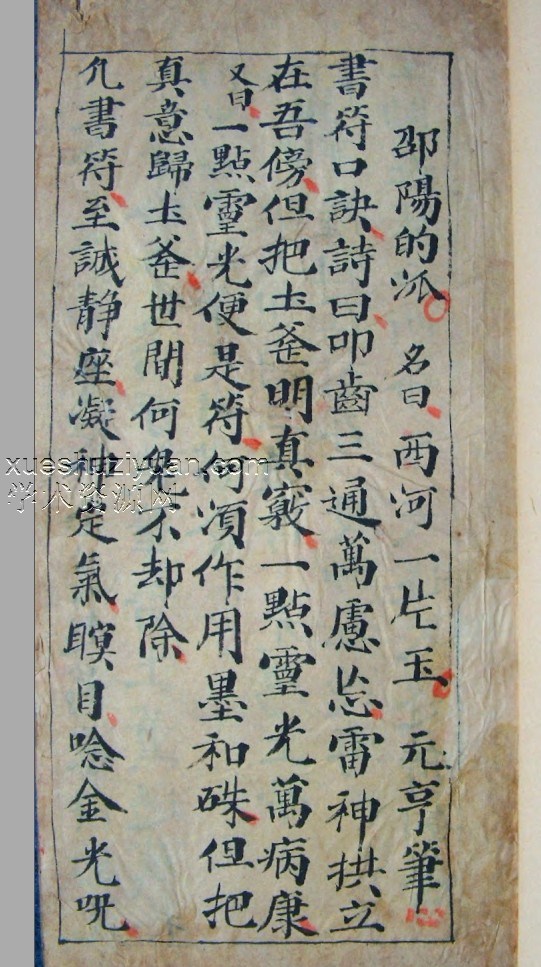 邵陽的派 名曰 西河一片玉 元亨筆
書符口訣詩曰叩齒三通萬慮忘雷神拱立
在吾傍但把土釜明真竅一點靈光萬病康
又曰一點靈光便是符何須作用墨和硃但把
真意歸土釜世間何鬼不却除
凢書符至誠静座凝神定氣瞑目唸金光咒
xueshuziyuan.com
学术资源网